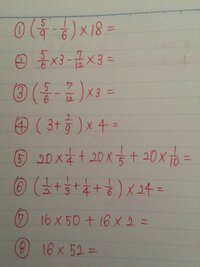 ① (5/9 - 1/6) × 18 =
② 5/6 × 3 - 7/12 × 3 =
③ (5/6 - 7/12) × 3 =
④ (3 + 2/9) × 4 =
⑤ 20 × 1/4 + 20 × 1/5 + 20 × 1/10 =
⑥ (1/2 + 1/3 + 1/4 + 1/6) × 24 =
⑦ 16 × 50 + 16 × 2 =
⑧ 16 × 52 =